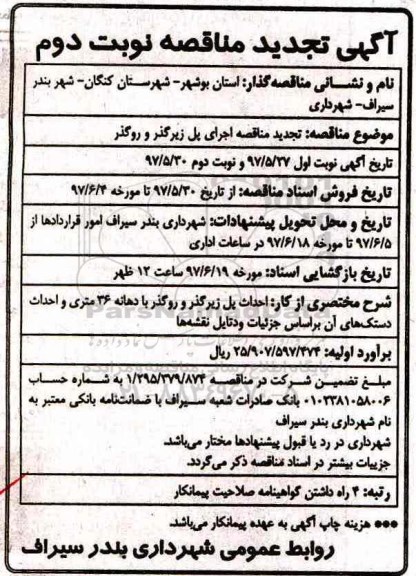 آگهی تجدید مناقصه نوبت دوم
نام و نشانی مناقصه‌گذار: استان بوشهر- شهرستان کنگان- شهر بندر
سیراف- شهرداری
موضوع مناقصه: تجدید مناقصه اجرای پل زیرگذر و روگذر
تاریخ آگهی نوبت اول ۹۷/۵/۲۷ و نوبت دوم ۹۷/۵/۳۰
تاریخ فروش اسناد مناقصه: از تاریخ ۹۷/۵/۳۰ تا مورخه ۹۷/۶/۴
تاریخ و محل تحویل پیشنهادات: شهرداری بندر سیراف امور قراردادها از
۹۷/۶/۵ تا مورخه ۹۷/۶/۱۸ در ساعات اداری
تاریخ بازگشایی اسناد: مورخه ۹۷/۶/۱۹ ساعت ۱۲ ظهر
شرح مختصری از کار: احداث پل زیرگذر و روگذر با دهانه ۳۶ متری و احداث
ParsNamadData
دستک‌های آن براساس جزئیات ودتایل نقشه‌ها
برآورد اولیه: ۲۵/۹۰۷/۵۹۷/۴۷۴ ریال
مبلغ تضمین شرکت در مناقصه ۱/۲۹۵/۳۷۹/۸۷۴ به شماره حساب
۰۱۰۲۳۸۱۰۵۸۰۰۶ بانک صادرات شعبه سیراف با ضمانت‌نامه بانکی معتبر به
نام شهرداری بندر سیراف
شهرداری در رد یا قبول پیشنهادها مختار می‌باشد.
جزییات بیشتر در اسناد مناقصه ذکر می‌گردد.
رتبه: ۴ راه داشتن گواهینامه صلاحیت پیمانکار
●●● هزینه چاپ آگهی به عهده پیمانکار می‌باشد.
روابط عمومی شهرداری بندر سیراف